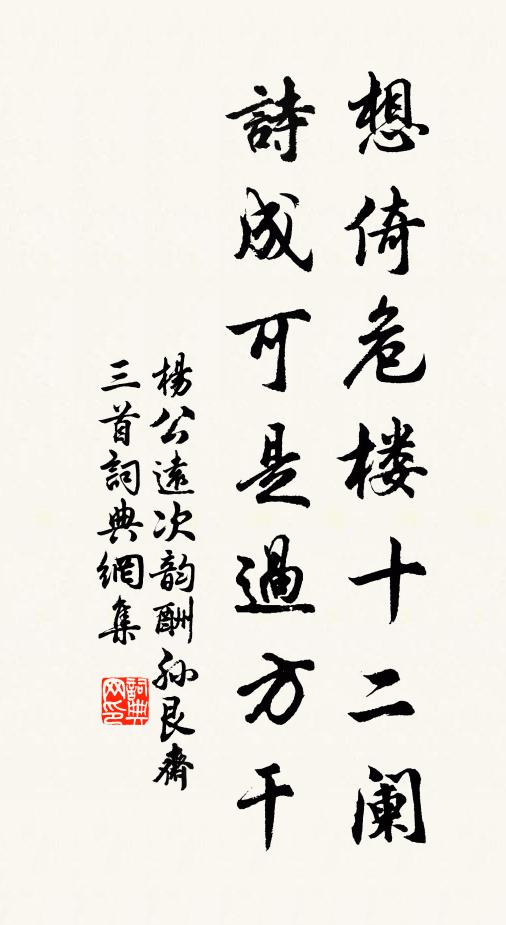 想倚危楼十二阑
詩成可是過方干
楊公遠次韵酬孙艮齋
三首詞典網集
詞典网印